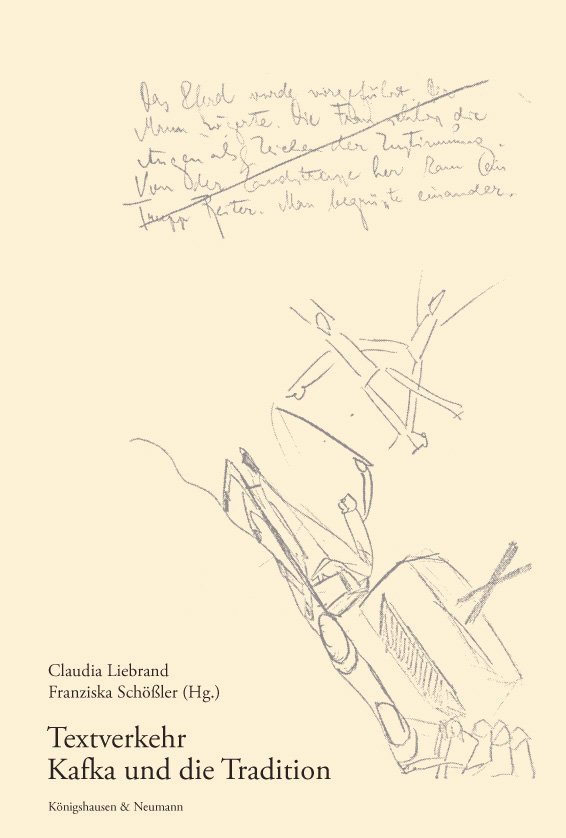 Das Pferd wurde vorgeführt. Der
Mann zögerte. Die Frau schlug die
Augen als Zeichen der Zustimmung.
Von der Landstrasse her kam (ein
Trupp Reiter. Man begrüsste einander.
Claudia Liebrand
Franziska Schößler (Hg.)
Textverkehr
Kafka und die Tradition
Königshausen & Neumann